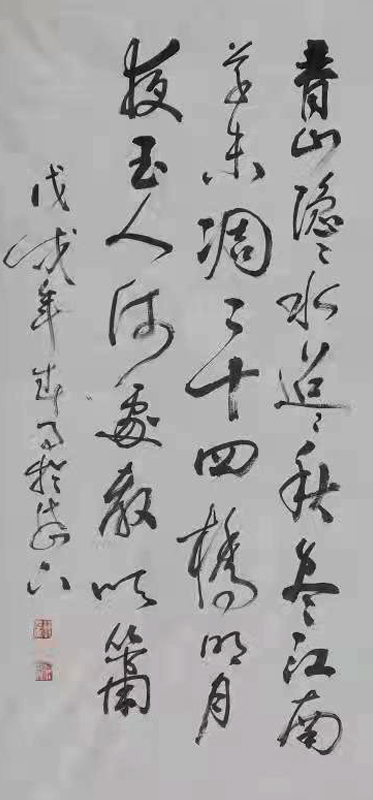 青山隐々水迢々秋尽江南
草未凋二十四橋明月
夜玉人何處教吹簫
戊戌年於